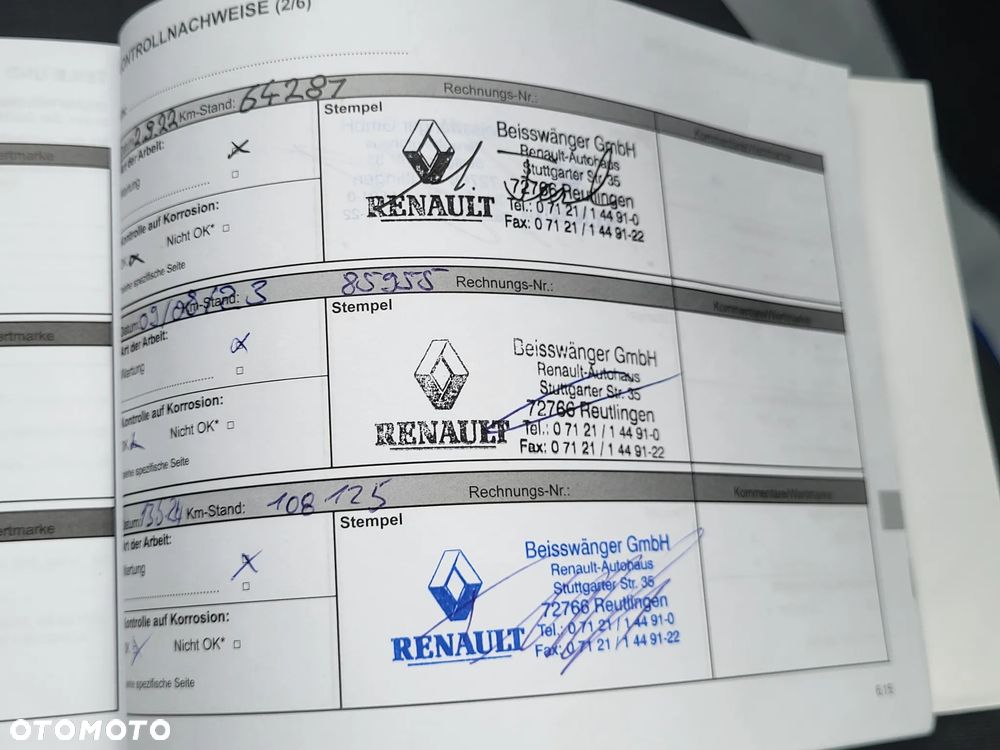 KONTROLLNACHWEISE (2/6)
Km-Stand: 64287
Rechnungs-Nr.:
Kommentare/Wertmarke
Art der Arbeit:
Wartung
Kontrolle auf Korrosion:
OK
Nicht OK*
siehe spezifische Seite
Stempel
RENAULT
Beisswänger GmbH
Renault-Autohaus
Stuttgarter Str. 35
72766 Reutlingen
Tel.: 0 71 21 / 1 44 91-0
Fax: 0 71 21 / 1 44 91-22
Datum: 09/08/23
Km-Stand: 85955
Rechnungs-Nr.:
Kommentare/Wertmarke
Art der Arbeit:
Wartung
Kontrolle auf Korrosion:
OK
Nicht OK*
siehe spezifische Seite
Stempel
RENAULT
Beisswänger GmbH
Renault-Autohaus
Stuttgarter Str. 35
72766 Reutlingen
Tel.: 0 71 21 / 1 44 91-0
Fax: 0 71 21 / 1 44 91-22
Datum: 13.5.24
Km-Stand: 108125
Rechnungs-Nr.:
Kommentare/Wertmarke
Art der Arbeit:
Wartung
Kontrolle auf Korrosion:
OK
Nicht OK*
siehe spezifische Seite
Stempel
RENAULT
Beisswänger GmbH
Renault-Autohaus
Stuttgarter Str. 35
72766 Reutlingen
Tel.: 0 71 21 / 1 44 91-0
Fax: 0 71 21 / 1 44 91-22
6.15
ertmarke
ertmarke
ertmarke
OTOMOTO